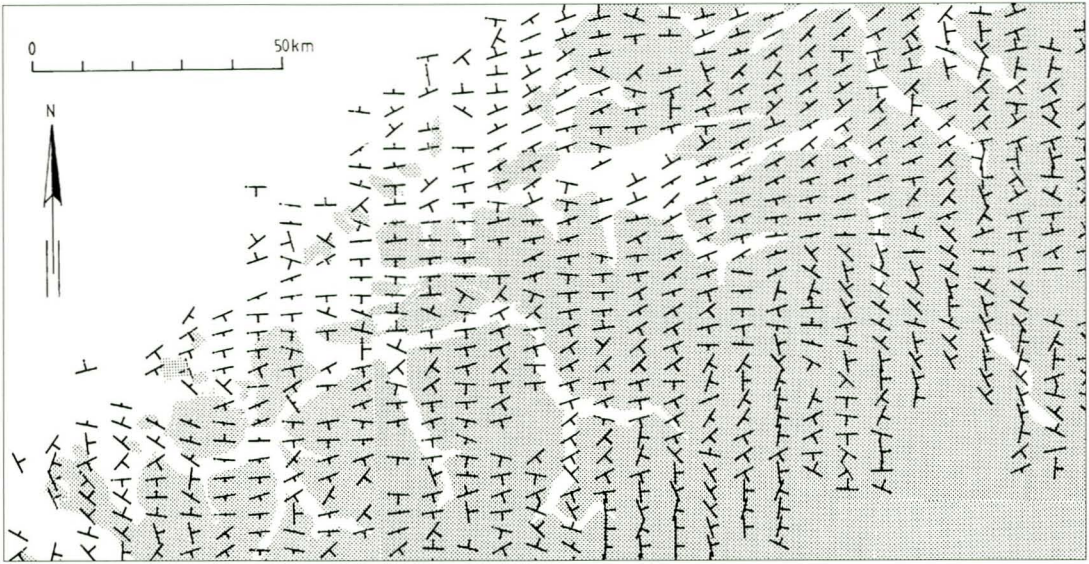 0 50km
N